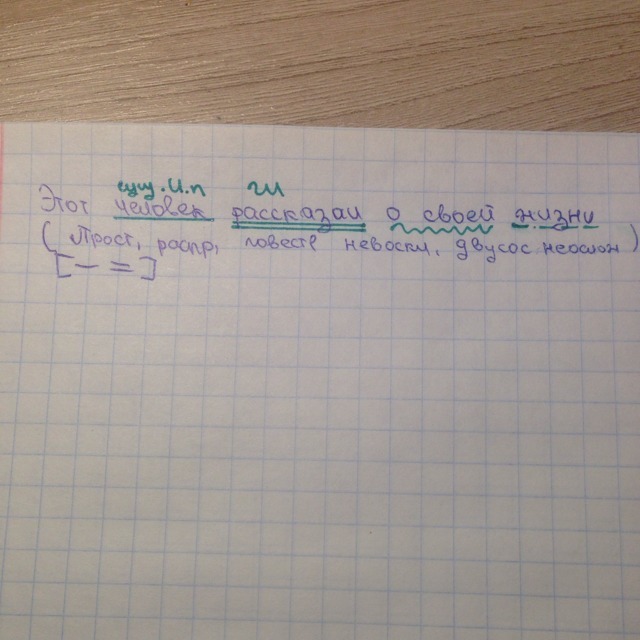 сущ. И.п гл
Этот человек рассказал о своей жизни
(Прост, распр, повеств невоскл, двусос. неослож)
[— =]